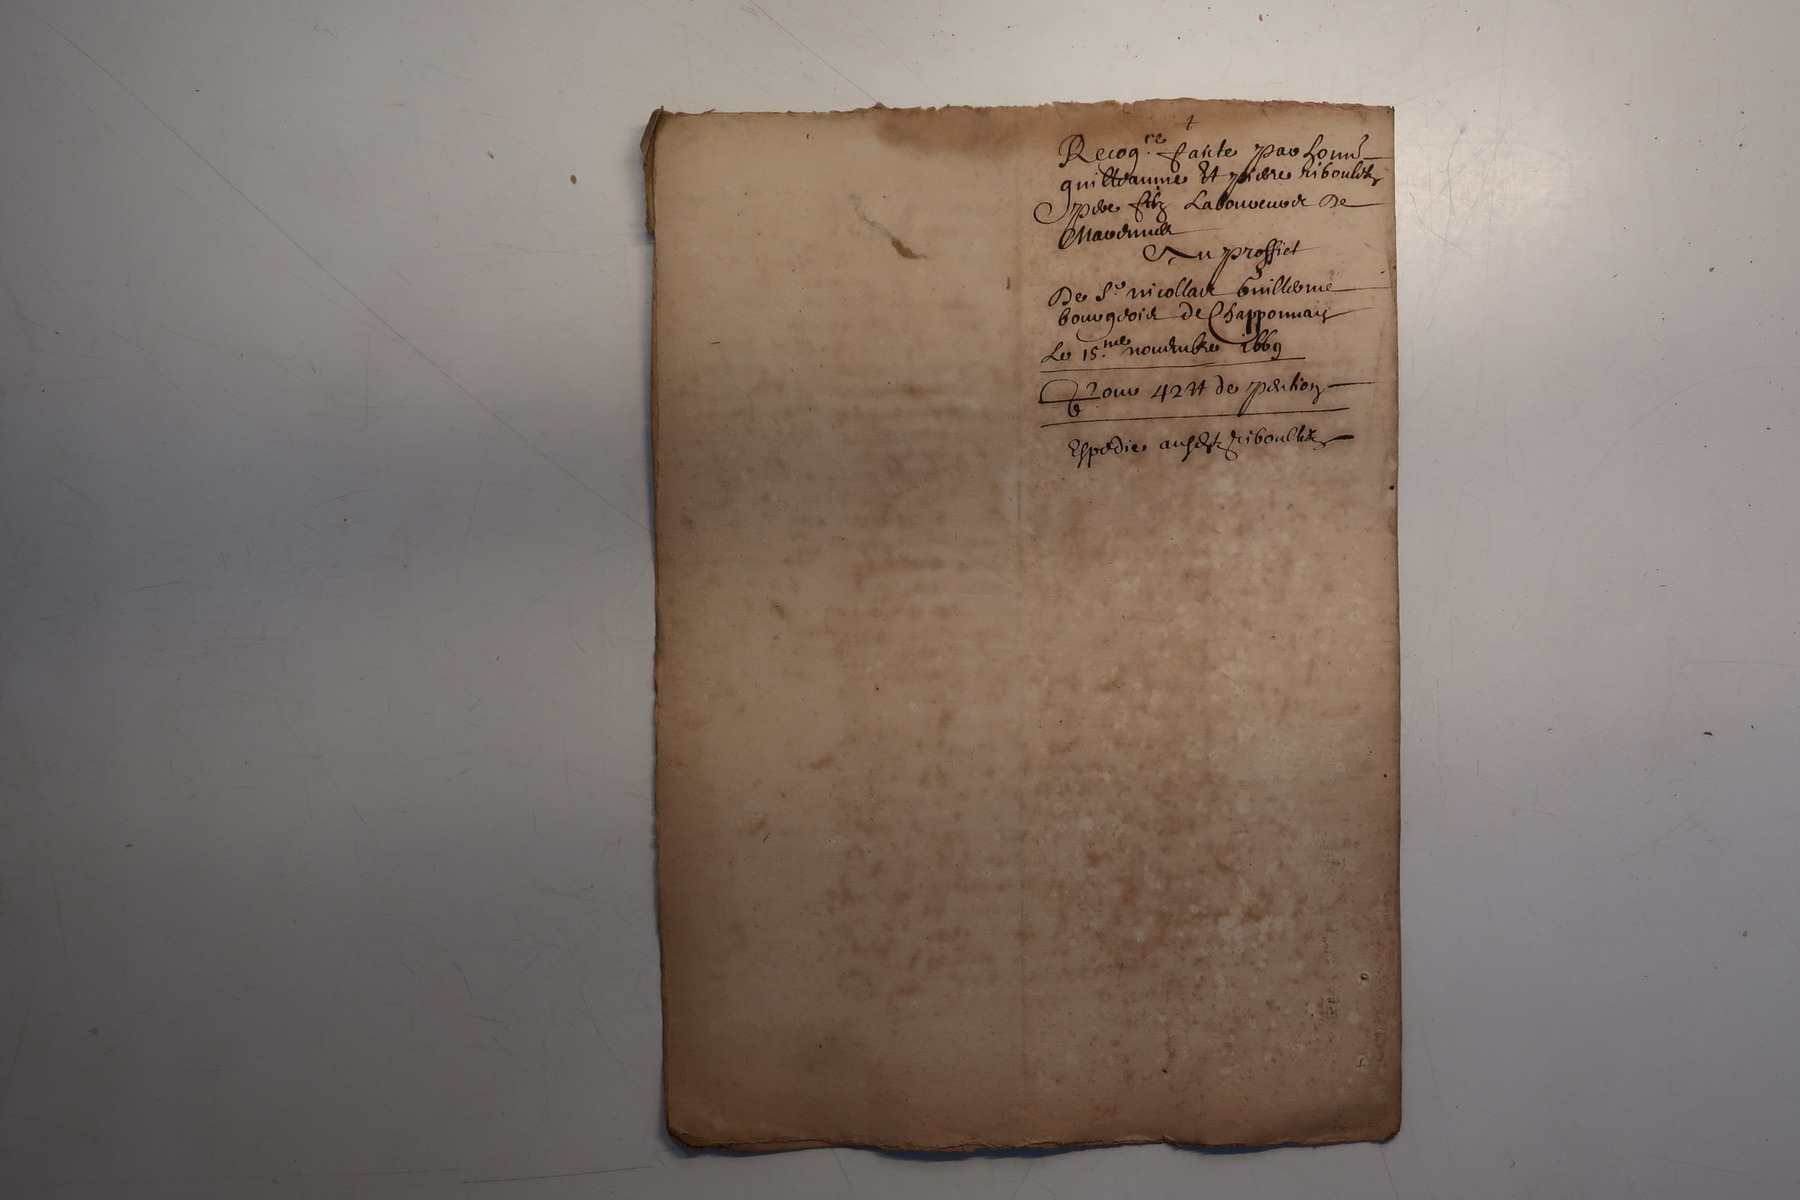 Recog.ce faicte par honn.e
guillaume Et pierre riboullets
pere fils Laboureurs De
Au proffict
De S.r nicollas Guillerme
bourgeois de Chapponnay
Le 15.me novembre 1669
Pour 42 tt de pention
Expedie ausdts riboullets